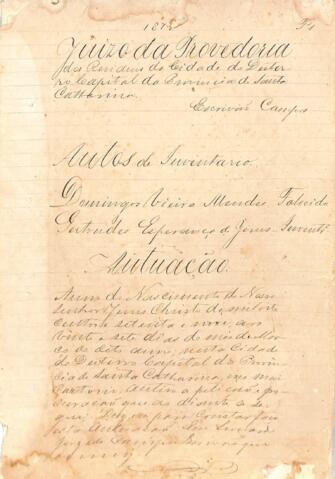 1879 Fs
Juizo da Provedoria
dos Residuos da Cidade do Dester
ro Capital da Provincia de Santa
Catharina.
Escrivão Campos
Autos de Inventario.
Domingos Vieira Mendes Falecido
Gertrudes Esperança de Jesus Invent
Autuação.
Anno do Nascimento de Nosso
Senhor Jesus Christo de mil oito
centos e setenta e nove, aos
vinte e sete dias do mez de Mar
ço do dito anno, nesta Cidade
do Desterro Capital da Provin
cia de Santa Catharina, em meu
Cartorio autuo a petição e pro
curação que ao diante se se
gue: Do que para constar faço
esta autuação. Eu